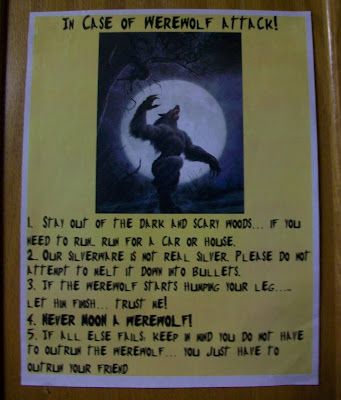 In Case of Werewolf Attack!
1. Stay out of the dark and scary woods... if you
need to run.. run for a car or house.
2.. Our silverware is not real silver. Please do not
attempt to melt it down into bullets.
3. If the werewolf starts humping your leg.....
let him finish... trust me!
4. Never moon a werewolf!
5. If all else fails, keep in mind you do not have
to outrun the werewolf... you just have to
outrun your friend